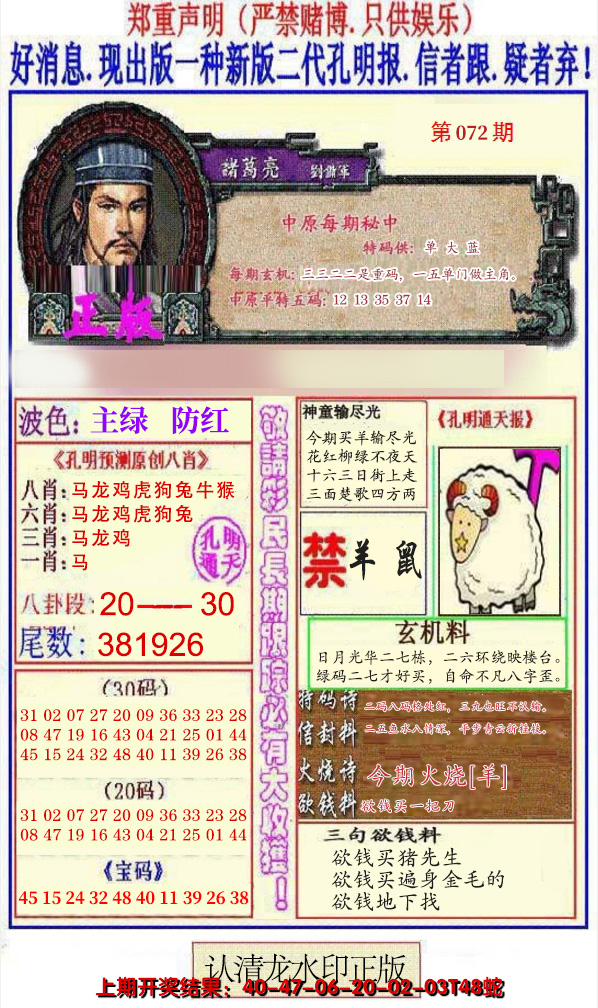 郑重声明（严禁赌博.只供娱乐）
好消息.现出版一种新版二代孔明报.信者跟.疑者弃!
第072期
諸葛亮 劉備軍
中原每期秘中
特码供：单大蓝
每期玄机：三三二二是重码，一五单们做主角。
中原平特五码：12 13 35 37 14
正版
波色：主绿 防红
《孔明预测原创八肖》
八肖：马龙鸡虎狗兔牛猴
六肖：马龙鸡虎狗兔
三肖：马龙鸡
一肖：马
孔明
通天
八卦段：20——30
尾数：381926
（30码）
31 02 07 27 20 09 36 33 23 28
08 47 19 16 43 04 21 25 01 44
45 15 24 32 48 40 11 39 26 38
（20码）
31 02 07 27 20 09 36 33 23 28
08 47 19 16 43 04 21 25 01 44
《宝码》
45 15 24 32 48 40 11 39 26 38
敬請彩民長期跟踪必有大收獲！
神童输尽光
今期买羊输尽光
花红柳绿不夜天
十六三日街上走
三面楚歌四方两
《孔明通天报》
禁羊鼠
玄机料
日月光华二七栋，二六环绕映楼台。
绿码二七才好买，自命不凡八字歪。
特码诗 二码八码格处红，三九也旺不认输。
信封料 二五鱼水入情深，平步青云折桂枝。
火烧诗 今期火烧[羊]
欲钱料 欲钱买一把刀
三句欲钱料
欲钱买猪先生
欲钱买遍身金毛的
欲钱地下找
认清龙水印正版
上期开奖结果：40-47-06-20-02-03T48蛇